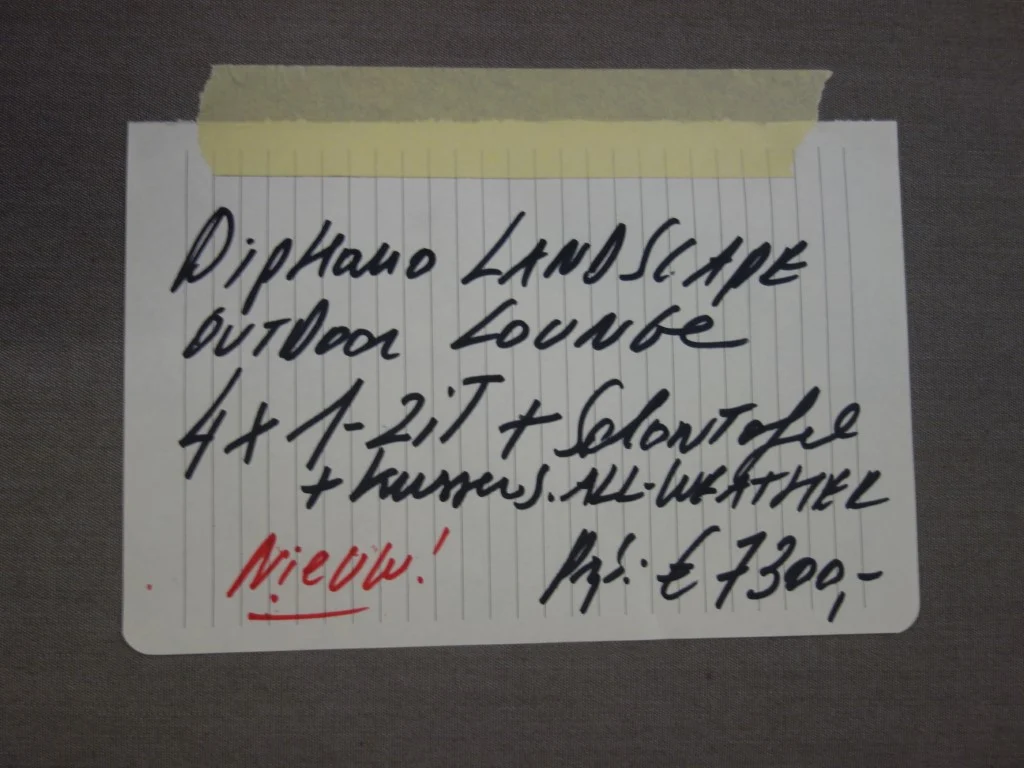 DipHano LANDSCAPE
OUTDOOR LOUNGe
4x 1-ZiT + SalonTafel
+ kussens. ALL-WEATHER
Nieuw! Prijs: € 7300,-